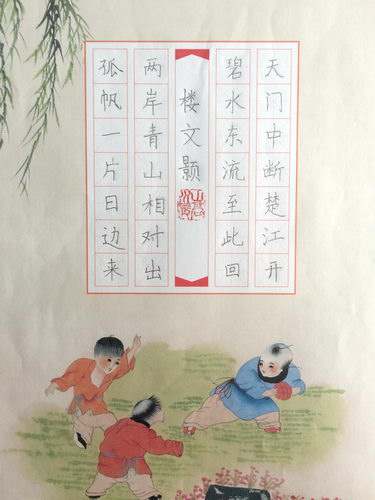 天门中断楚江开
碧水东流至此回
楼文颢
两岸青山相对出
孤帆一片日边来